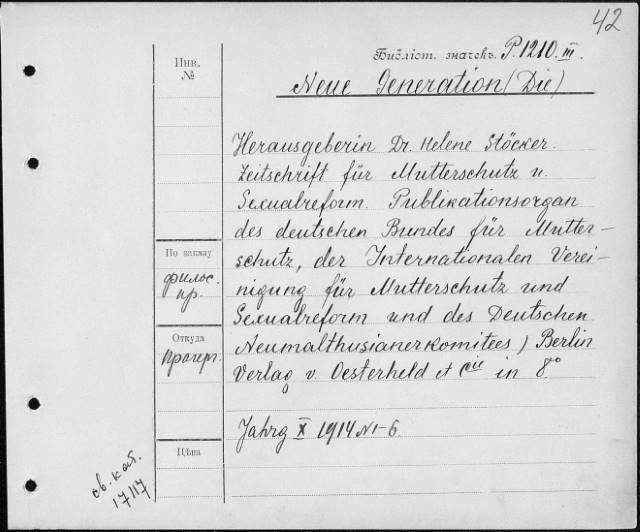 42
Библіот. значекъ. P.1210.III.
Neue Generation (Die)
Инв.
№
Herausgeberin Dr. Helene Stöcker.
Zeitschrift für Mutterschutz u.
Sexualreform. Publikationsorgan
des deutschen Bundes für Mutter-
schutz, der Internationalen Verei-
nigung für Mutterschutz und
Sexualreform und des Deutschen
Neumalthusianerkomitees) Berlin
Verlag v. Oesterheld et Cie in 8°
Jahrg X 1914 N1-6.
По заказу
филос.
пр.
Откуда
Цѣна
св. кат.
17/17